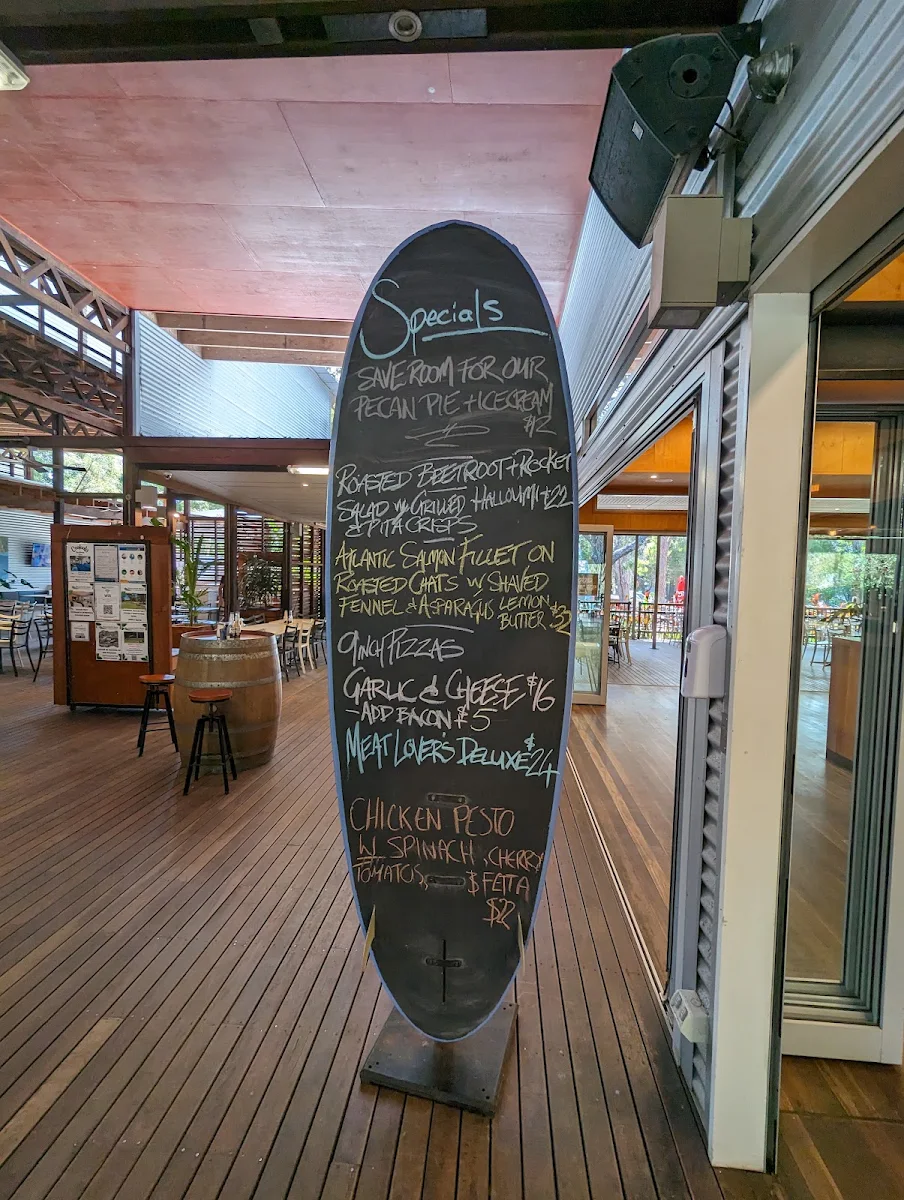 Specials
SAVE ROOM FOR OUR
PECAN PIE + ICECREAM
$12
ROASTED BEETROOT + ROCKET
SALAD W GRILLED HALLOUMI $22
& PITA CRISPS
ATLANTIC SALMON FILLET ON
ROASTED CHATS W SHAVED
FENNEL & ASPARAGUS LEMON
BUTTER $32
9INCH PIZZAS
GARLIC & CHEESE $16
- ADD BACON $5
MEAT LOVER'S DELUXE $24
CHICKEN PESTO
W SPINACH, CHERRY
TOMATOS, & FETTA
$22